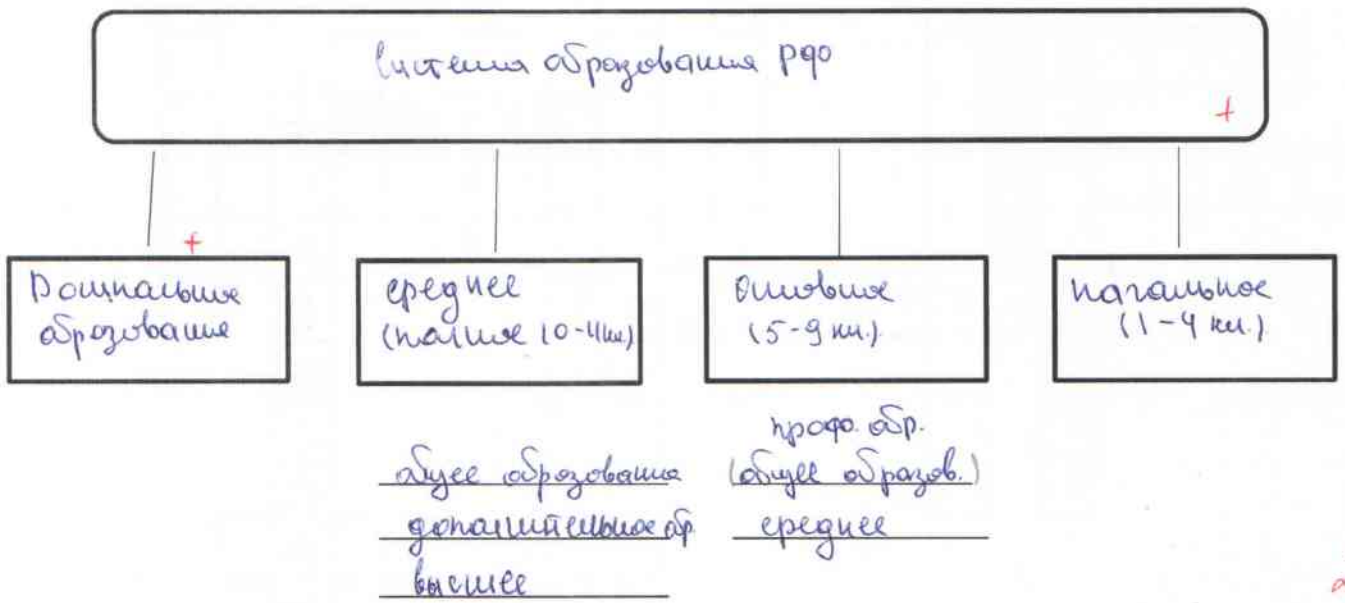 Система образования РФ
+
+
Дошкольное
образование
среднее
(полное 10-11кл.)
Основное
(5-9 кл.)
начальное
(1-4 кл.)
общее образование
дополнительное обр.
высшее
проф. обр.
(общее образов.)
среднее